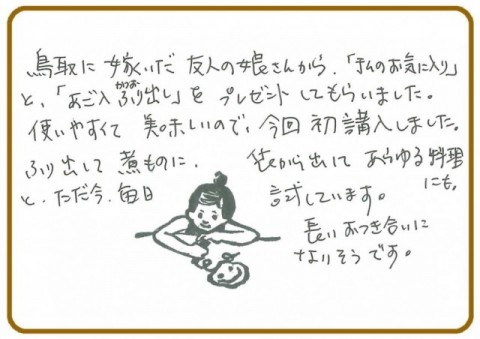 鳥取に嫁いだ友人の娘さんから、「私のお気に入り」
と、「あご入かつおふり出し」を プレゼントしてもらいました。
使いやすくて 美味しいので、今回 初購入しました。
ふり出して 煮ものに、 袋から出して あらゆる料理にも。
と、ただ今、毎日 試しています。
長いおつき合いに
なりそうです。